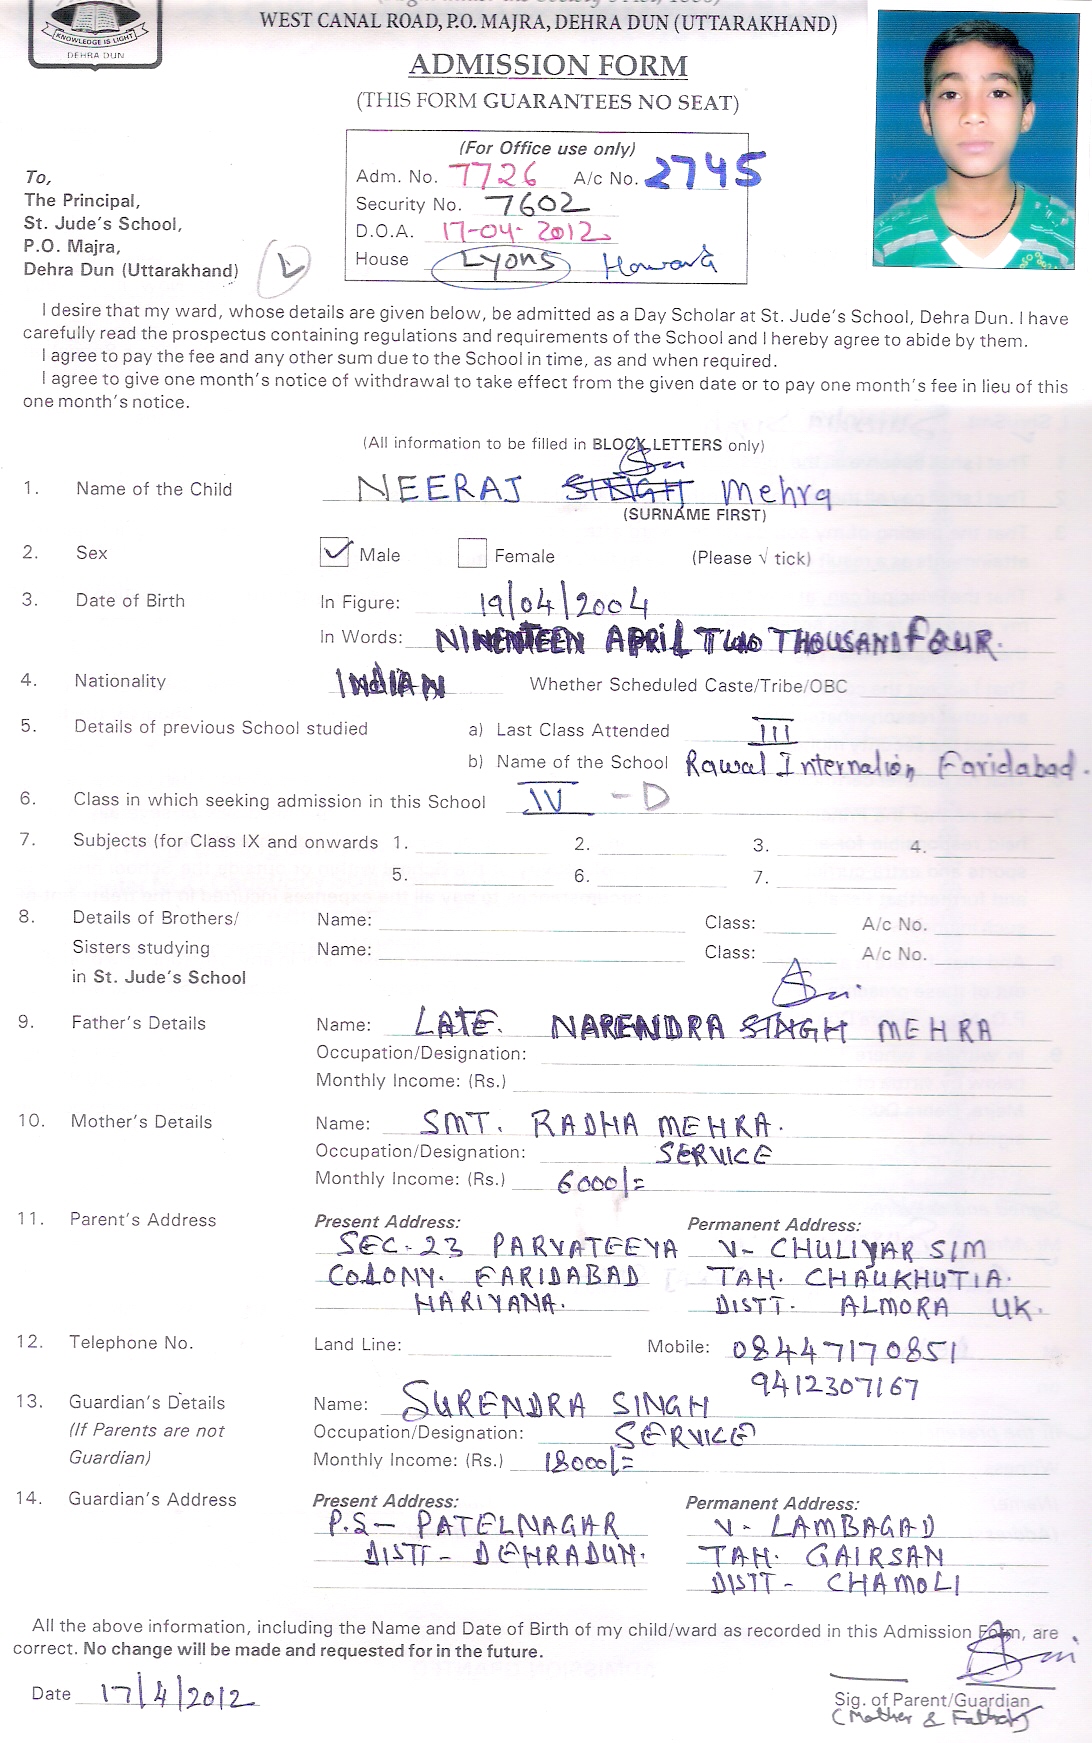 KNOWLEDGE IS LIGHT
DEHRA DUN
WEST CANAL ROAD, P.O. MAJRA, DEHRA DUN (UTTARAKHAND)
ADMISSION FORM
(THIS FORM GUARANTEES NO SEAT)
(For Office use only)
Adm. No. 7726 A/c No. 2745
Security No. 7602
D.O.A. 17-04-2012
House Lyons Howard
To,
The Principal,
St. Jude's School,
P.O. Majra,
Dehra Dun (Uttarakhand)
L
I desire that my ward, whose details are given below, be admitted as a Day Scholar at St. Jude's School, Dehra Dun. I have
carefully read the prospectus containing regulations and requirements of the School and I hereby agree to abide by them.
I agree to pay the fee and any other sum due to the School in time, as and when required.
I agree to give one month's notice of withdrawal to take effect from the given date or to pay one month's fee in lieu of this
one month's notice.
(All information to be filled in BLOCK LETTERS only)
1. Name of the Child NEERAJ SINGH Mehra
(SURNAME FIRST)
2. Sex Male Female (Please √ tick)
3. Date of Birth In Figure: 19/04/2004
In Words: NINENTEEN APRIL TWO THOUSAND FOUR.
4. Nationality INDIAN Whether Scheduled Caste/Tribe/OBC
5. Details of previous School studied a) Last Class Attended III
b) Name of the School Rawal Internation Faridabad.
6. Class in which seeking admission in this School IV - D
7. Subjects (for Class IX and onwards 1. 2. 3. 4.
5. 6. 7.
8. Details of Brothers/ Name: Class: A/c No.
Sisters studying Name: Class: A/c No.
in St. Jude's School
9. Father's Details Name: LATE. NARENDRA SINGH MEHRA
Occupation/Designation:
Monthly Income: (Rs.)
10. Mother's Details Name: SMT. RADHA MEHRA.
Occupation/Designation: SERVICE
Monthly Income: (Rs.) 6000/=
11. Parent's Address Present Address: Permanent Address:
SEC-23 PARVATEEYA V- CHULIYAR SIM
COLONY. FARIDABAD TAH. CHAUKHUTIA.
HARIYANA. DISTT. ALMORA UK.
12. Telephone No. Land Line: Mobile: 08447170851
9412307167
13. Guardian's Details Name: SURENDRA SINGH
(If Parents are not Occupation/Designation: SERVICE
Guardian) Monthly Income: (Rs.) 18000/=
14. Guardian's Address Present Address: Permanent Address:
P.S- PATELNAGAR V- LAMBAGAD
DISTT- DEHRADUN. TAH. GAIRSAN
DISTT- CHAMOLI
All the above information, including the Name and Date of Birth of my child/ward as recorded in this Admission Form, are
correct. No change will be made and requested for in the future.
Date 17/4/2012
Sig. of Parent/Guardian
(Mother & Father)